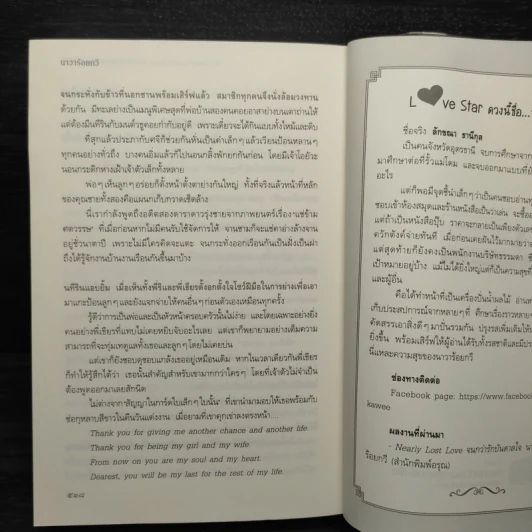 นาวาร้อยกวี
จนกระทั่งกับข้าวที่นอกชานพร้อมเสิร์ฟแล้ว สมาชิกทุกคนจึงนั่งล้อมวงทาน
ด้วยกัน มีทะเลย่างเป็นเมนูพิเศษสุดที่พ่อบ้านสองคนคอยอาสาย่างบนเตาถ่านให้
แต่ต้องมีนทีรินกับมนต์วธูคอยกำกับอยู่ดี เพราะเดี๋ยวจะได้กินแบบทั้งไหม้และดิบ
ที่สุกแล้วประภากับศจีก็ช่วยกันหั่นเป็นคำเล็กๆ แล้วเวียนป้อนหลานๆ
ทุกคนอย่างทั่วถึง บางคนอิ่มแล้วก็ไปนอนกลิ้งพักยกกันก่อน โดยมีเจ้าโอยัวะ
นอนกระดิกหางเฝ้าเจ้าตัวเล็กทั้งหลาย
พ่อๆ เห็นลูกๆ อร่อยก็ตั้งหน้าตั้งตาย่างกันใหญ่ ทั้งที่จริงแล้วหน้าที่หลัก
ของคุณชายทั้งสองคือแผนกเก็บกวาดเช็ดล้าง
นี่เรากำลังพูดถึงอดีตสองดาราดาวรุ่งชายจากภาพยนตร์เรื่อง
ที่เมื่อก่อนหากไม่มีคนรับใช้จัดการให้ จานชามก็จะแช่คาอ่างล้างจาน
อยู่ชั่วนาตาปี เพราะไม่มีใครคิดจะแตะ จนกระทั่งออกเรือนกันเป็นฝั่งเป็นฝา
ถึงได้รู้จักงานบ้านงานเรือนกันขึ้นมาบ้าง
นทีรินแอบยิ้ม เมื่อเห็นทั้งพี่รีและพี่เธียรตั้งอกตั้งใจโชว์ฝีมือในการย่างเพื่อเอา
มาแกะป้อนลูกๆ และยังแจกจ่ายให้คนอื่นๆ ก่อนตัวเองเหมือนทุกครั้ง
รู้ดีว่าการเป็นพ่อและเป็นหัวหน้าครอบครัวนั้นไม่ง่าย และโดยเฉพาะอย่างยิ่ง
คนอย่างพี่เธียรที่แทบไม่เคยหยิบจับอะไรเลย แต่เขาก็พยายามอย่างเต็มความ
สามารถที่จะทุ่มเทดูแลทั้งเธอและลูกๆ โดยไม่เคยบ่น
แต่เขาก็ยังชอบดุชอบแกล้งเธออยู่เหมือนเดิม หากในเวลาเดียวกันพี่เธียร
ก็ทำให้รู้สึกได้ว่า เธอนั้นสำคัญสำหรับเขามากกว่าใครๆ โดยที่เจ้าตัวไม่จำเป็น
ต้องพูดออกมาเลยสักนิด
ไม่ต่างจาก 'สัญญาในการ์ดใบเล็กๆ ใบนั้น' ที่เขานำมามอบให้เธอพร้อมกับ
ช่อกุหลาบสีขาวในคืนวันแต่งงาน เมื่อยามที่เขาคุกเข่าลงตรงหน้า...
Thank you for giving me another chance and another life.
Thank you for being my girl and my wife
From now on you are my soul and my heart.
Dearest, you will be my last for the rest of my life.
๕๑๘
Love Star ดวงนี้ชื่อ...
ชื่อจริง ลักขณา ธานีกุล
เป็นคนจังหวัดอุดรธานี จบการศึกษาจาก
มาศึกษาต่อที่รั้วแม่โดม และจบออกมาแบบที่
อะไร
แต่ก็พอมีจุดชี้นำเล็กๆ ว่าเป็นคนชอบอ่าน
ชอบเข้าห้องสมุดและร้านหนังสือเป็นว่าเล่น จะซื้อ
แต่ถ้าเป็นหนังสือปุ๊บ ราคาจะกลายเป็นเพียงตัวเลข
ควักตังค์จ่ายทันที เมื่อก่อนเคยฝันไว้มากมายว่า
แต่สุดท้ายก็ยังคงเป็นพนักงานบริษัทธรรมดา
เป้าหมายอยู่บ้าง แม้ไม่ได้ยิ่งใหญ่แต่ก็เป็นความสุขที่
และผู้อื่น
คือได้ทำหน้าที่เป็นเครื่องปั่นน้ำผลไม้ อ่าน
เก็บประสบการณ์จากหลายๆ ที่ ศึกษาเรื่องราวหลายๆ
คัดสรรเอาสิ่งดีๆ มาปั่นรวมกัน ปรุงรสเพิ่มเติมให้
ยิ่งขึ้น พร้อมเสิร์ฟให้ผู้อ่านได้รับทั้งรสชาติและมี
นี่แหละความสุขของนาวาร้อยกวี
ช่องทางติดต่อ
Facebook page: https://www.facebook
kawee
ผลงานที่ผ่านมา
- Nearly Lost Love จนกว่ารักบันดาลใจ
ร้อยกวี (สำนักพิมพ์อรุณ)